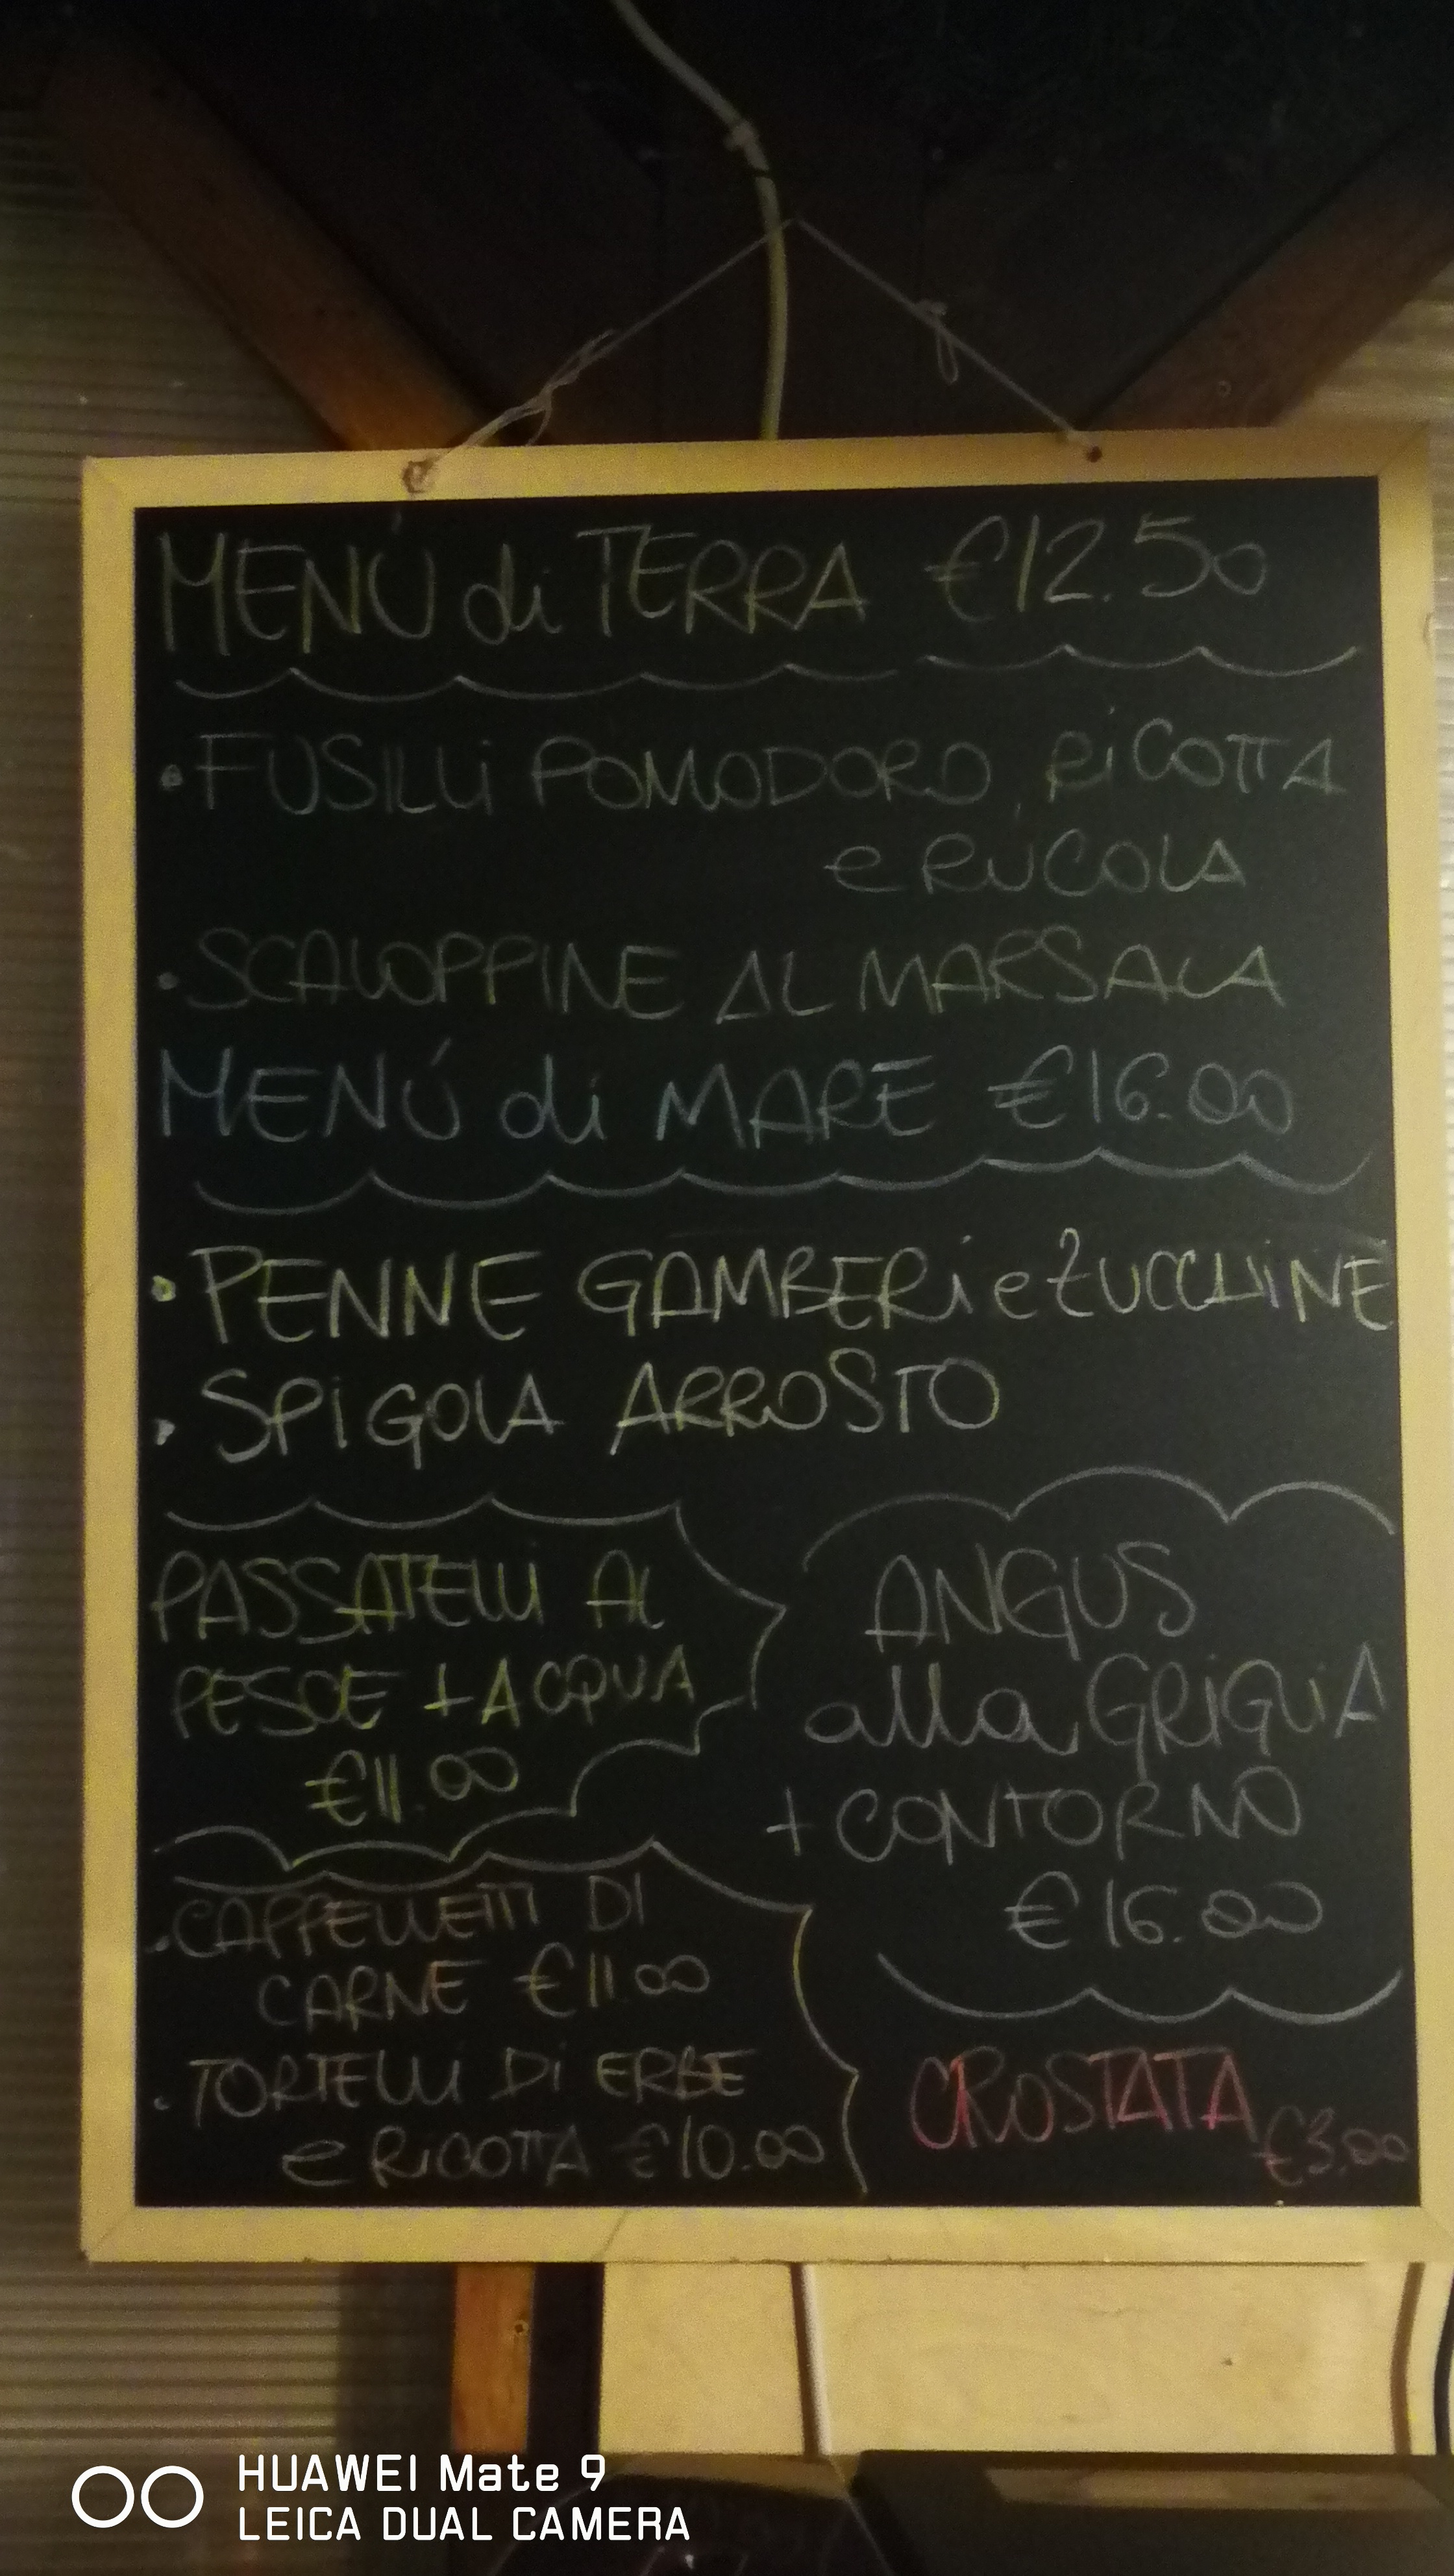 MENÚ di TERRA €12.50
• FUSILLI POMODORO, RICOTTA
e RUCOLA
• SCALOPPINE AL MARSALA
MENÚ di MARE €16.00
• PENNE GAMBERI e ZUCCHINE
• SPIGOLA ARROSTO
PASSATELLI AL
PESCE + ACQUA
€11.00
ANGUS
alla GRIGLIA
+ CONTORNO
€16.00
• CAPPELLETTI DI
CARNE €11.00
• TORTELLI DI ERBE
e RICOTTA €10.00
CROSTATA
€3.00
HUAWEI Mate 9
LEICA DUAL CAMERA